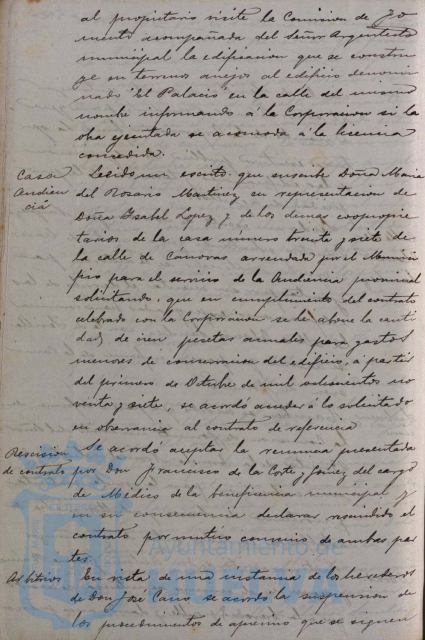 al propietario visite la Comision de Fo
mento acompañada del Señor Arquitecto
municipal la edificacion que se constru
ye en terrenos anejos al edificio denomi
nado "El Palacio" en la calle del mismo
nombre informando á la Corporacion si la
obra ejecutada se acomoda á la licencia
concedida.
Casa Audien cia
Leido un escrito que suscribe Doña Maria
del Rosario Martinez en representacion de
Doña Ysabel Lopez y de los demas coopropie
tarios de la casa número treinta y siete de
la calle de Cánovas arrendada por el Munici
pio para el servicio de la Audiencia provincial
solicitando, que en cumplimiento del contrato
celebrado con la Corporacion se le abone la canti
dad de cien pesetas anuales para gastos
menores de conservacion del edificio, á partir
del primero de Octubre de mil ochocientos no
venta y siete, se acordó acceder á lo solicitado
en observancia al contrato de referencia
Rescision de contrato
Se acordó aceptar la renuncia presentada
por Don Francisco de la Corte y Gomez del cargo
de Médico de la beneficencia municipal y
en su consecuencia declarar rescindido el
contrato por mutuo convenio de ambas par
tes.
Arbitrios
En vista de una instancia de los herederos
de Don José Cano se acordó la suspension de
los procedimientos de apremio que se siguen
Ayuntamiento de
HUELVA